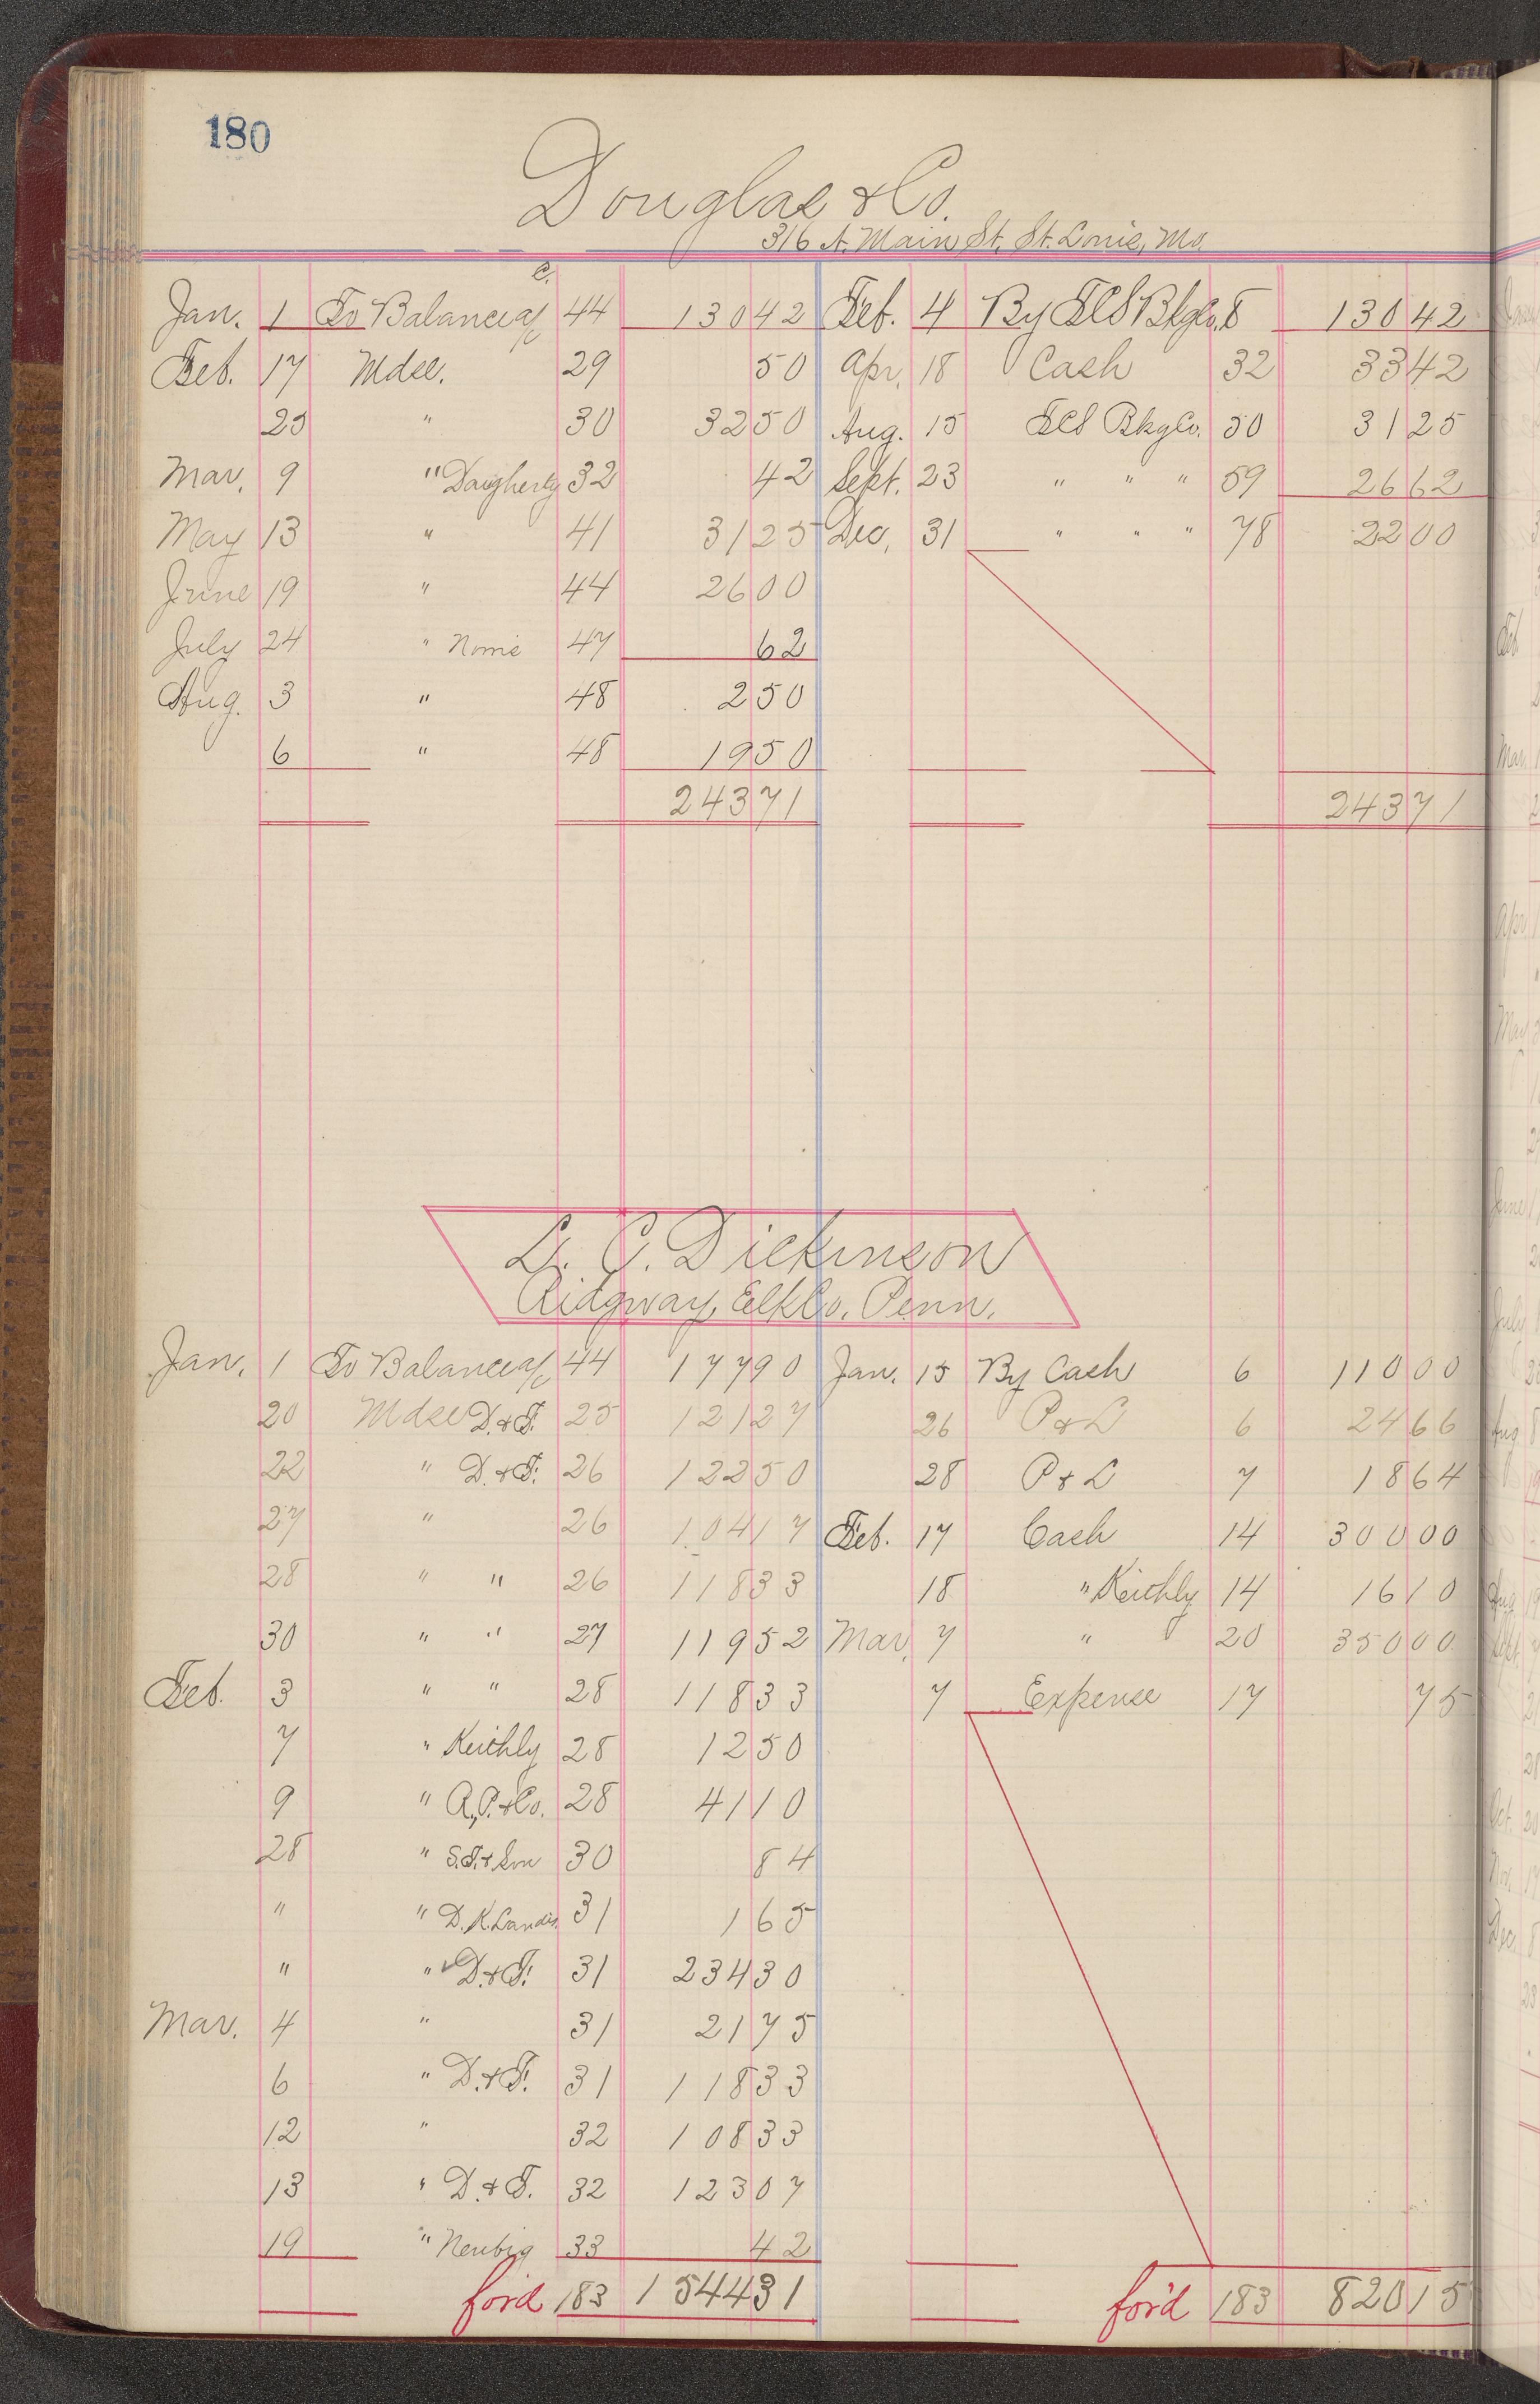 180
Douglas & Co.
316 N. Main St. St. Louis, Mo.
Jan. 1 To Balance a/c 44 130 42 Feb. 4 By TCS Bkg Co. 8 130 42
Feb. 17 Mdse. 29 50 Apr. 18 Cash 32 33 42
25 " 30 32 50 Aug. 15 TCS Bkg Co. 50 31 25
Mar. 9 " Daugherty 32 42 Sept. 23 " " " 59 26 62
May 13 " 41 31 25 Dec. 31 " " " 78 22 00
June 19 " 44 26 00
July 24 " 47 62
Aug. 3 " 48 2 50
6 " 48 19 50
243 71 243 71
L. C. Dickinson
Ridgway, Elk Co. Penn.
Jan. 1 To Balance a/c 44 177 90 Jan. 15 By Cash 6 110 00
20 Mdse D. & T. 25 121 27 26 P & L 6 24 66
22 " D. & T. 26 122 50 28 P & L 7 18 64
27 " 26 104 17 Feb. 17 Cash 14 300 00
28 " " 26 118 33 18 " Keithly 14 16 10
30 " " 27 119 52 Mar. 7 " 20 350 00
Feb. 3 " " 28 118 33 7 Expense 17 75
7 " Keithly 28 12 50
9 " A. P. & Co. 28 41 10
28 " S. T. & Son 30 84
" " D. K. Landis 31 1 65
" " D. & T. 31 234 30
Mar. 4 " 31 21 75
6 " D. & T. 31 118 33
12 " 32 108 33
13 " D. & T. 32 123 07
19 " Neubig 33 42
for'd 183 1544 31 for'd 183 820 15